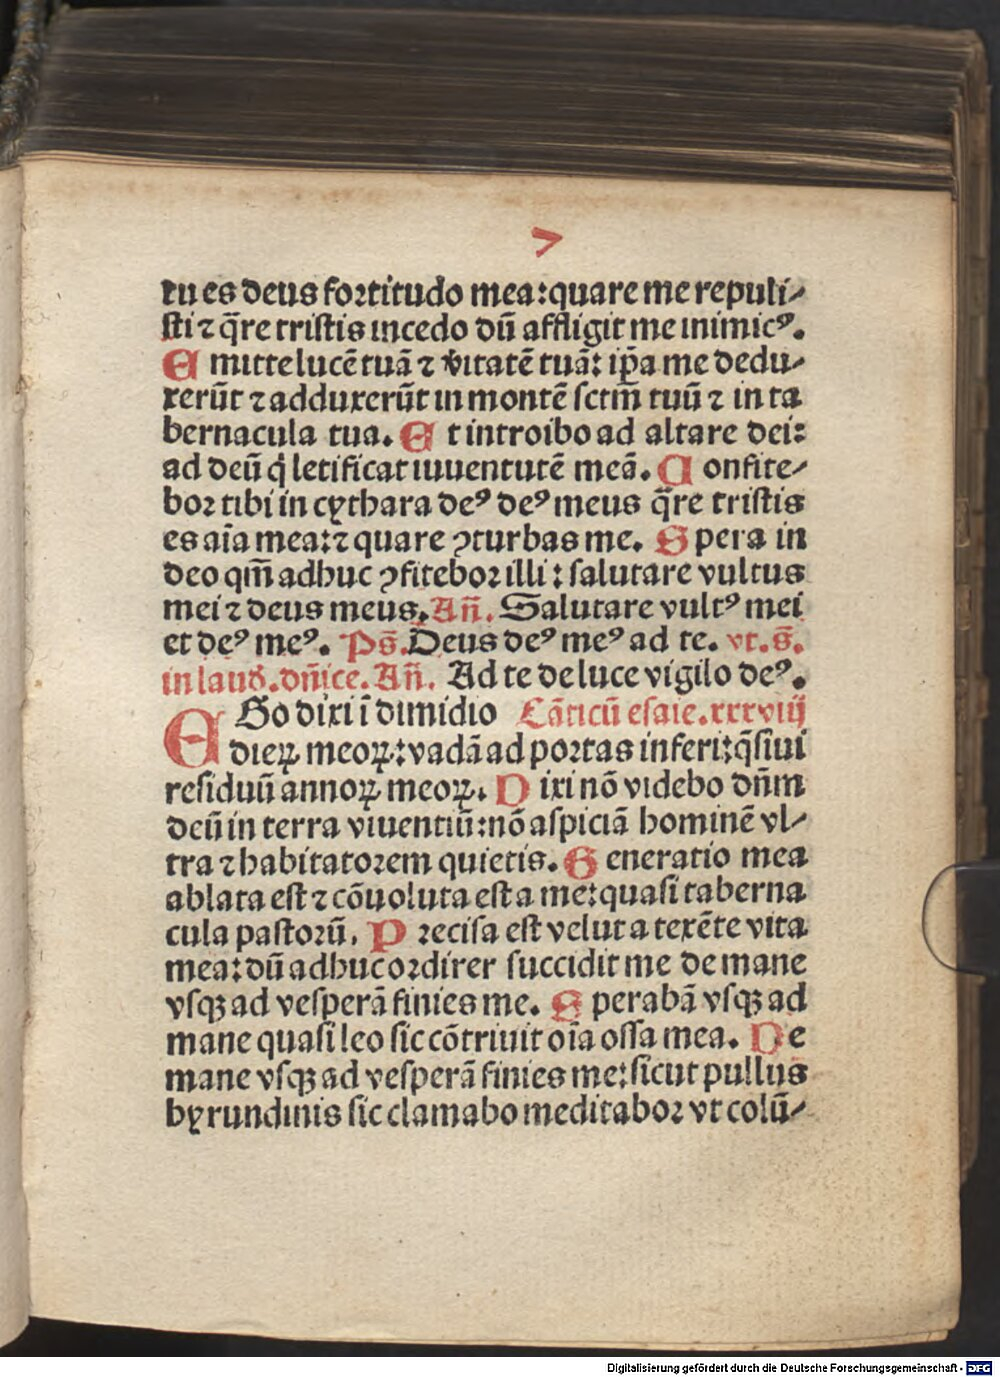 >
tu es deus fortitudo mea: quare me repuli-
sti ⁊ q̄re tristis incedo dū affligit me inimicꝰ.
E mitte lucē tuā ⁊ v̄itatē tuā: ip̄a me dedu-
xerūt ⁊ adduxerūt in montē sctm̄ tuū ⁊ in ta
bernacula tua. E t introibo ad altare dei:
ad deū q̇ letificat iuuentutē meā. C onfite-
bor tibi in cythara deꝰ deꝰ meus q̄re tristis
es aīa mea: ⁊ quare ꝯturbas me. S pera in
deo qm̄ adhuc ꝯfitebor illi: salutare vultus
mei ⁊ deus meus. Añ. Salutare vultꝰ mei
et deꝰ meꝰ. Ps̄. Deus deꝰ meꝰ ad te. vt. s̄.
in laud. dñice. Añ. Ad te de luce vigilo deꝰ.
E Go dixi ī dimidio Cāticū esaie. xxxviij
dieꝝ meoꝝ: vadā ad portas inferi: q̄siui
residuū annoꝝ meoꝝ. D ixi nō videbo dñm
deū in terra viuentiū: nō aspiciā hominē vl-
tra ⁊ habitatorem quietis. G eneratio mea
ablata est ⁊ cōuoluta est a me: quasi taberna
cula pastorū. P recisa est velut a texēte vita
mea: dū adhuc ordirer succidit me de mane
vsqꝫ ad vesperā finies me. S perabā vsqꝫ ad
mane quasi leo sic cōtriuit oīa ossa mea. D e
mane vsqꝫ ad vesperā finies me: sicut pullus
hyrundinis sic clamabo meditabor vt colū-
Digitalisierung gefördert durch die Deutsche Forschungsgemeinschaft - DFG